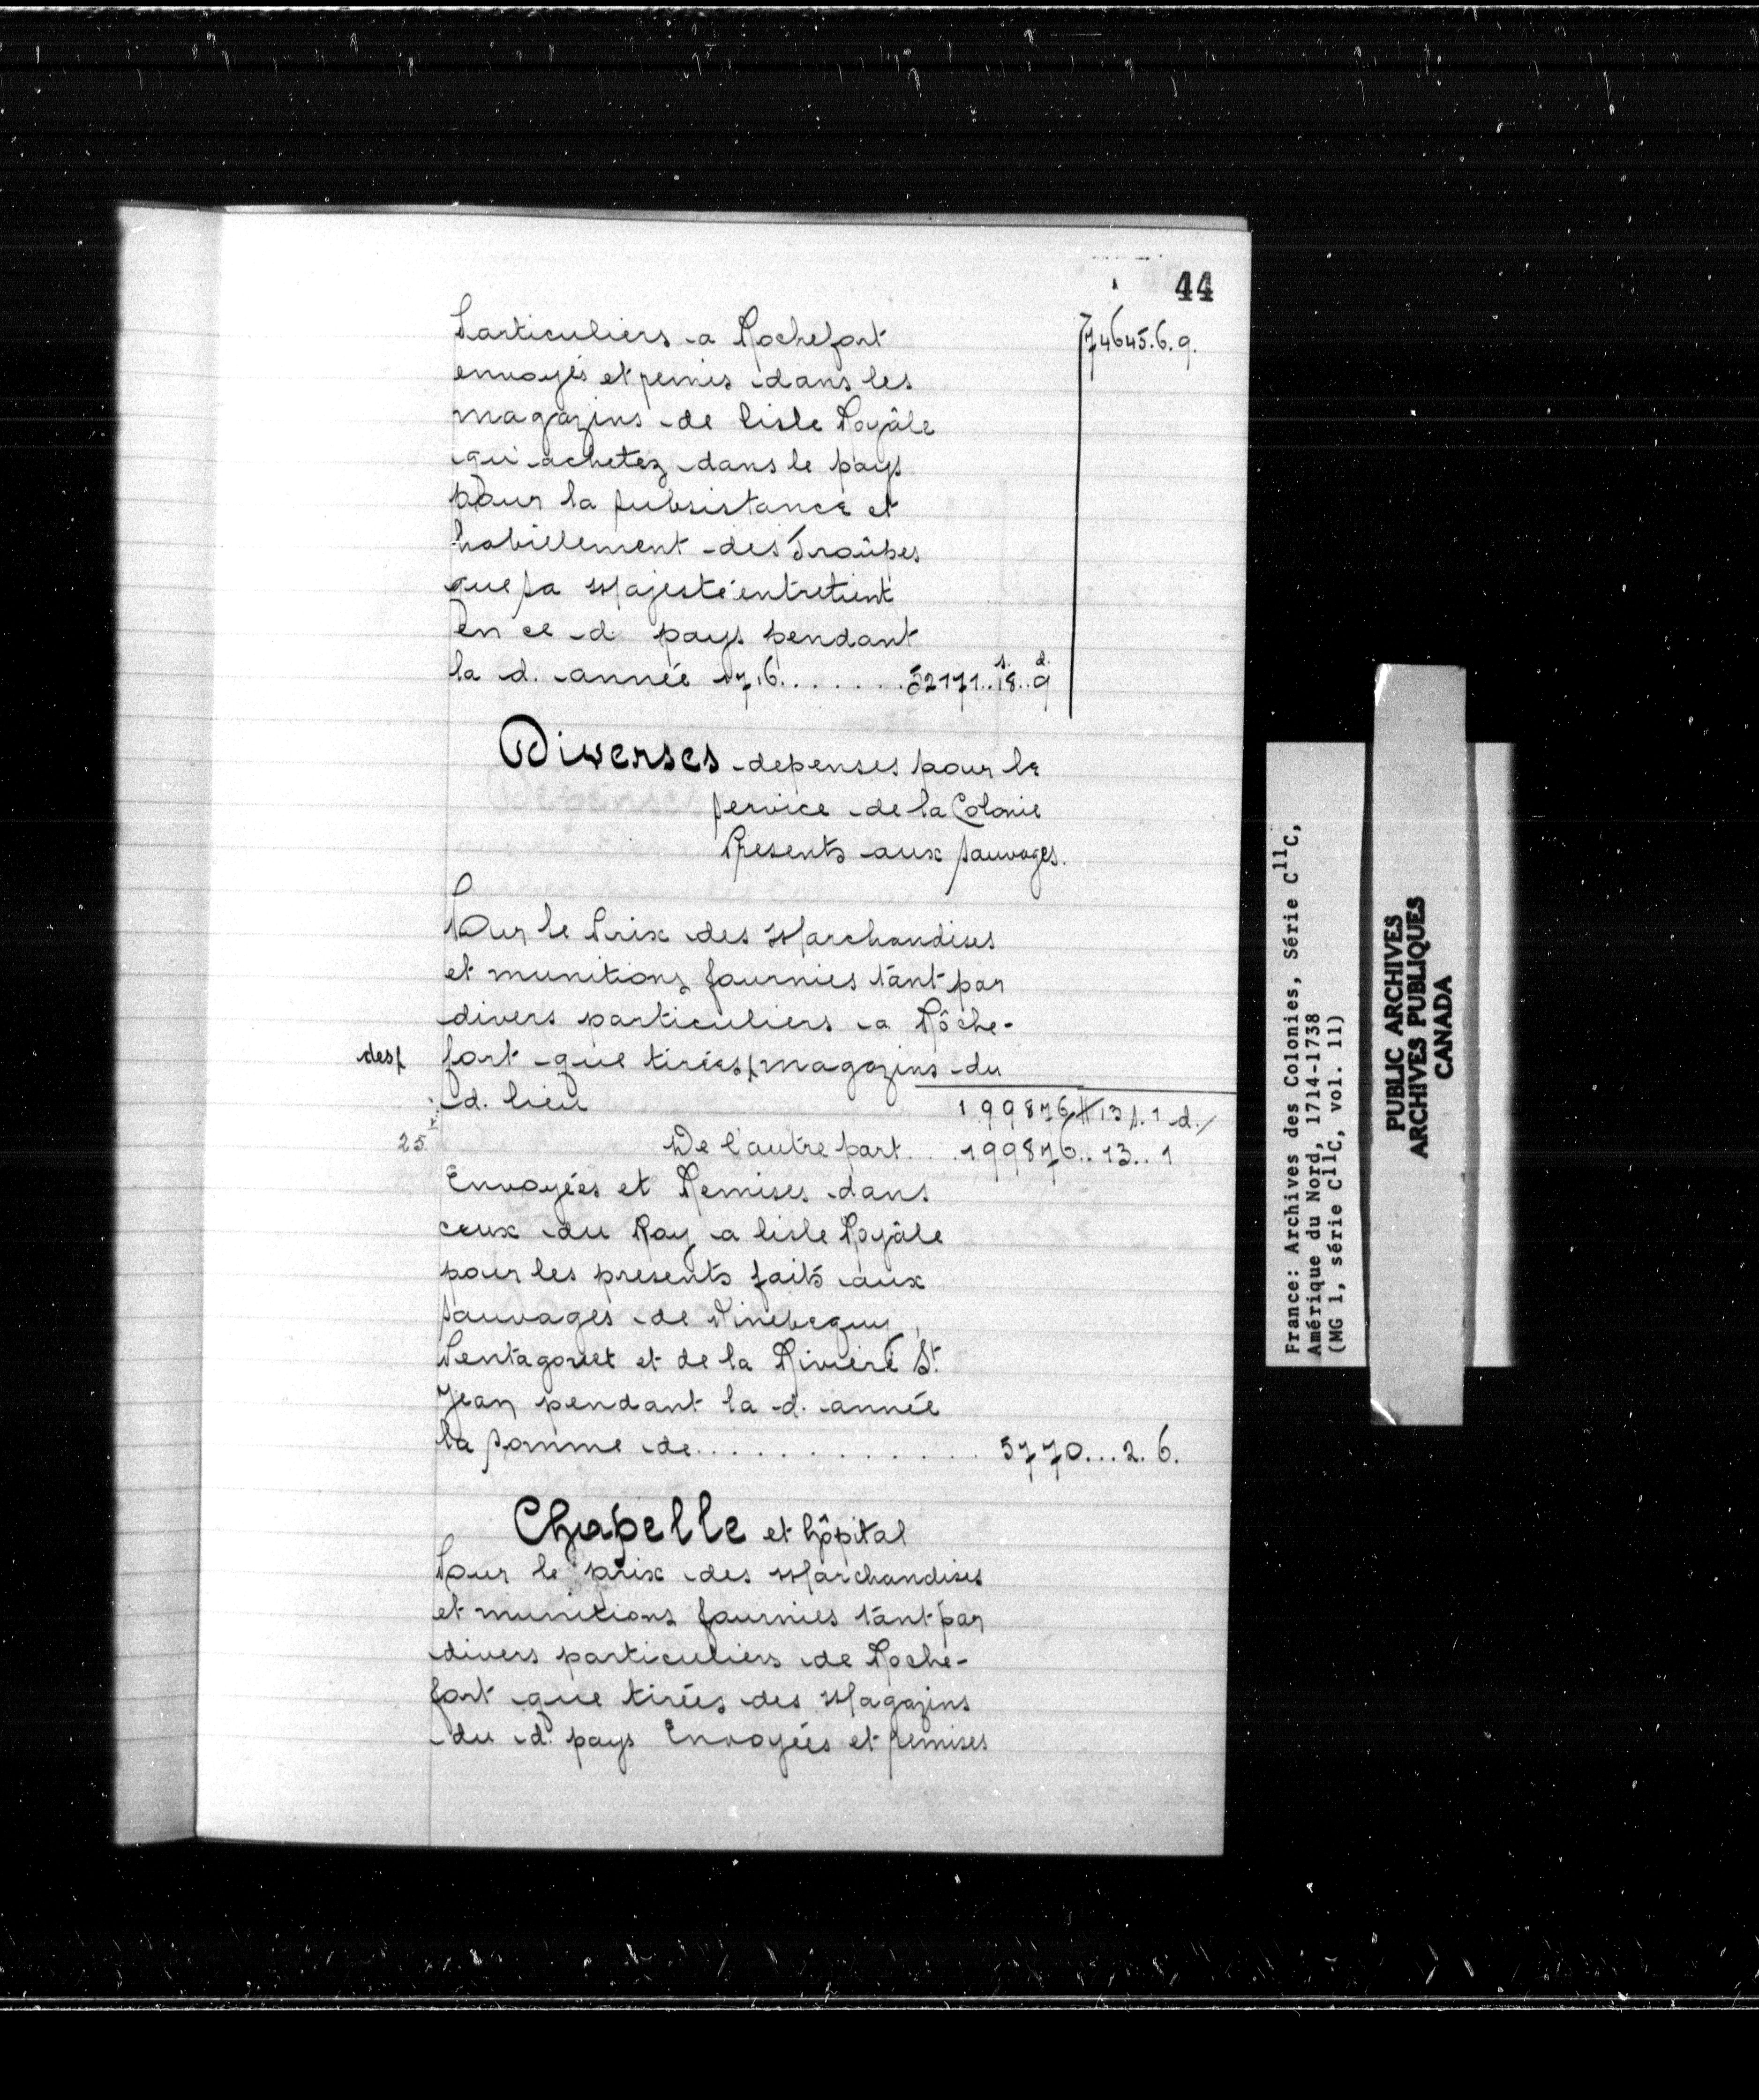 44
Particuliers a Rochefort
74645.6.9.
envoyés et remis dans les
magazins de lisle Royâle
qui achetez dans le pays
pour la subsistance et
habillement des Troûpes
que sa Majesté entretient
en ce d pays pendant
la d. année 1716.......52171..18 s...9 d.
Diverses depenses pour le
service de la Colonie
Presents aux sauvages.
Pour le Prix des Marchandises
et munitions fournies tant par
divers particuliers a Rôche-
des/ fort que tirées/magazins du
d. lieu 199876₶13s.1 d./
25
De l'autre part....199876..13..1
Envoyées et Remises dans
ceux du Roy a lisle Royâle
pour les presents faits aux
sauvages de
Pentagouet et de la Riviere St.
Jean pendant la d. année
la somme de.............5770...2.6.
Chapelle et hôpital
Pour le prix des Marchandises
et munitions fournies tant par
divers particuliers de Roche-
fort que tirées des Magazins
du d. pays Envoyées et remises
France: Archives des Colonies, Série C11C,
Amérique du Nord, 1714-1738
(MG 1, série C11C, vol. 11)
PUBLIC ARCHIVES
ARCHIVES PUBLIQUES
CANADA